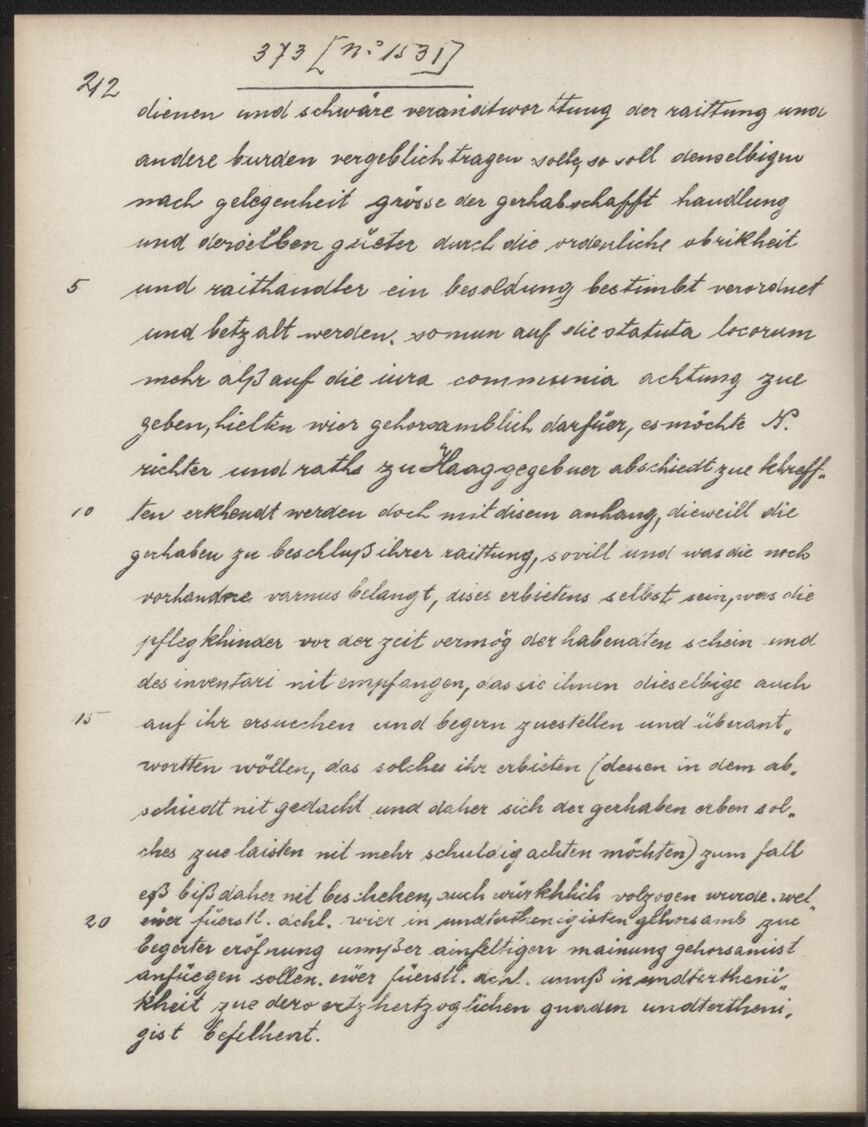 373 [n.° 1531]
212
dienen und schwäre verandtworttung der raittung und
andere burden vergeblich tragen solle, so soll denselbigen
nach gelegenheit grösse der gerhabschafft handlung
und derselben güeter durch die ordenliche obrikheit
5 und raithandler ein besoldung bestimbt verordnet
und betzalt werden. so nun auf die statuta locorum
mehr alß auf die iura communia achtung zue
geben, hielten wier gehorsamblich darfüer, es möchte N.
richter und raths zu Haag gegebner abschiedt zue khreff„
10 ten erkhendt werden doch mit disem anhang, dieweill die
gerhaben zu beschluß ihrer raittung, sovill und was die noch
vorhandne varnus belangt, dises erbietens selbst sein, was die
pflegkhinder vor der zeit vermög der habendten schein und
des inventari nit empfangen, das sie ihnen dieselbige auch
15 auf ihr ersuechen und begern zuestellen und überant„
wortten wöllen, das solches ihr erbieten (dessen in dem ab„
schiedt nit gedacht und daher sich der gerhaben erben sol„
ches zue laisten nit mehr schuldig achten möchten) zum fall
eß biß daher nit beschehen, auch würkhlich volzogen wurde. wel„
20 euer füerstl. dchl. wier in undterthenigisten gehorsamb zue
begerter eröfnung unnßer ainfeltigen mainung gehorsamist
anfüegen sollen. ewer füerstl. dchl. unnß in undtertheni„
kheit zue dero ertzhertzoglichen gnaden undtertheni„
gist befelhent.